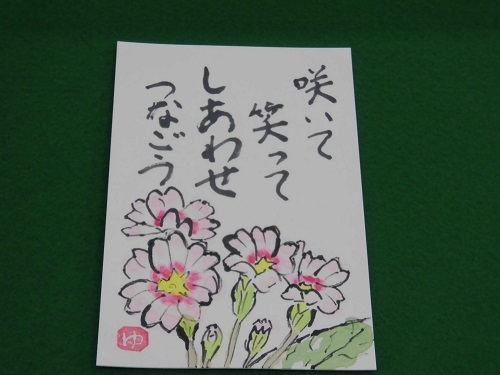 咲いて
笑って
しあわせ
つなごう